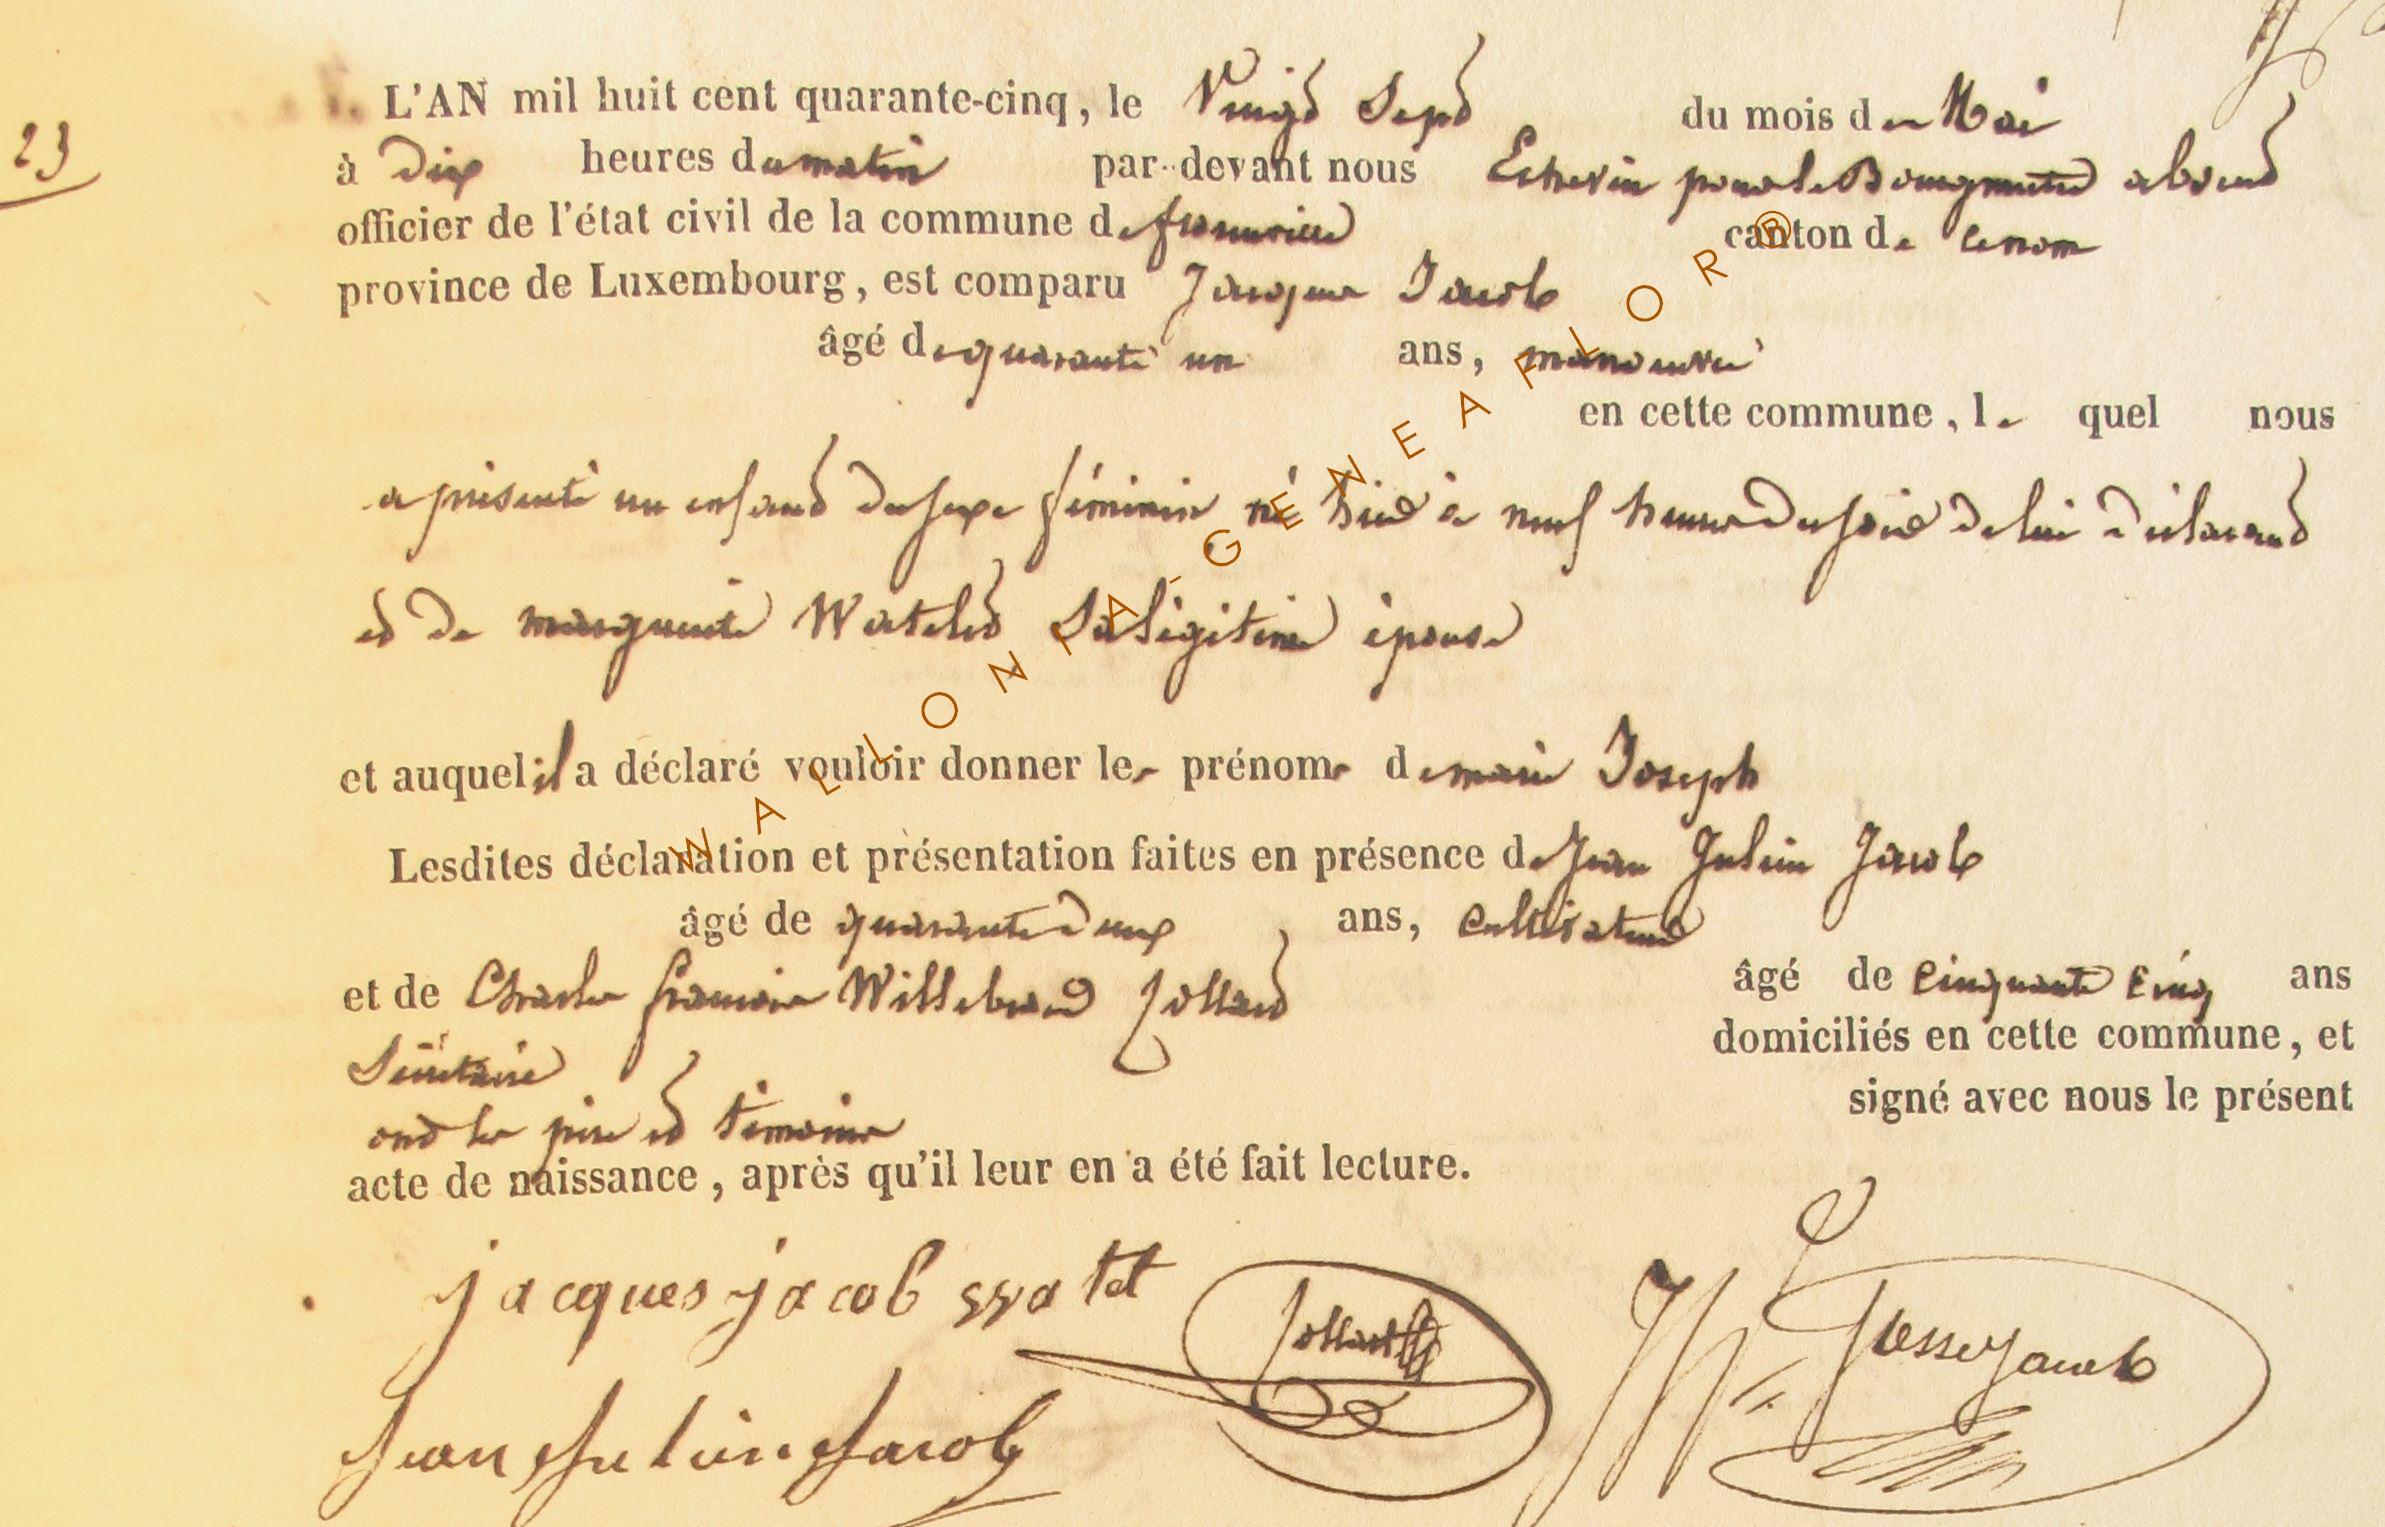 23
L'AN mil huit cent quarante-cinq, le Vingt Sept du mois de Mai
à dix heures du matin par-devant nous Echevin pour le Bourgmestre absent
officier de l'état civil de la commune de fronville canton de
province de Luxembourg, est comparu Jacques Jacob
âgé de quarante un ans, manoeuvre
en cette commune, le quel nous
a présenté un enfant du sexe féminin né hier à neuf heures du soir de lui déclarant
et de marguerite Watelet Sa légitime épouse
et auquel il a déclaré vouloir donner les prénoms de marie Joseph
Lesdites déclaration et présentation faites en présence de Jean Julien Jacob
âgé de quarante deux ans, cultivateur
et de Charles françois Willebrord Jollard âgé de cinquante cinq ans
Secrétaire domiciliés en cette commune, et
ont les père et témoins signé avec nous le présent
acte de naissance, après qu'il leur en a été fait lecture.
jacques jacob watet
Jean Julien Jacob
WALLONIA-GENEAFLOR®